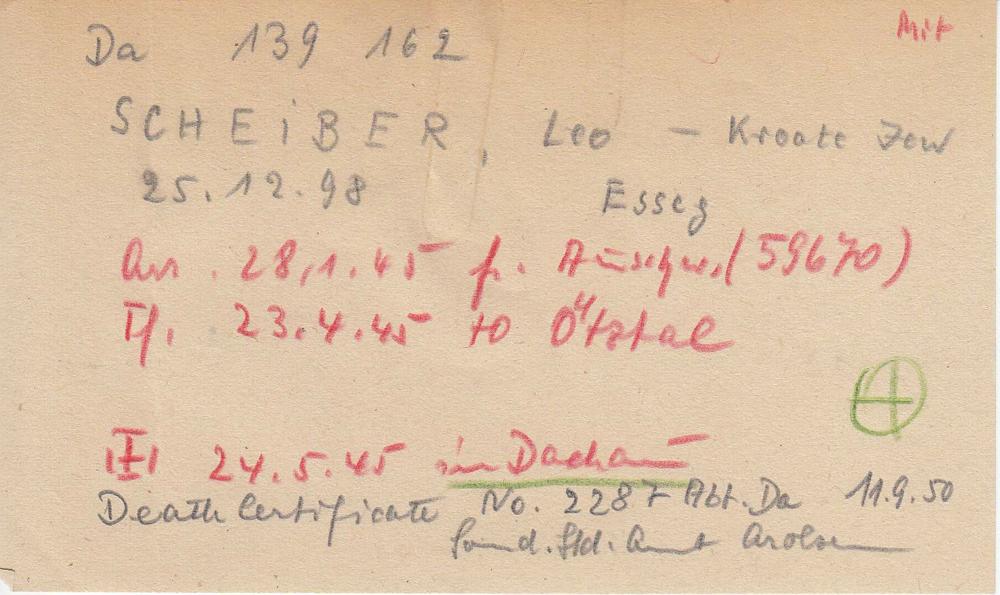 Mit
Da 139 162
SCHEiBER, Leo — Kroate Jew
25.12.98 Esseg
Arr. 28.1.45 f. Auschw. (59670)
Tf. 23.4.45 to Ötztal
24.5.45 in Dachau
Death Certificate No. 2287 Abt. Da 11.9.50
Sond. Std. Amt Arolsen